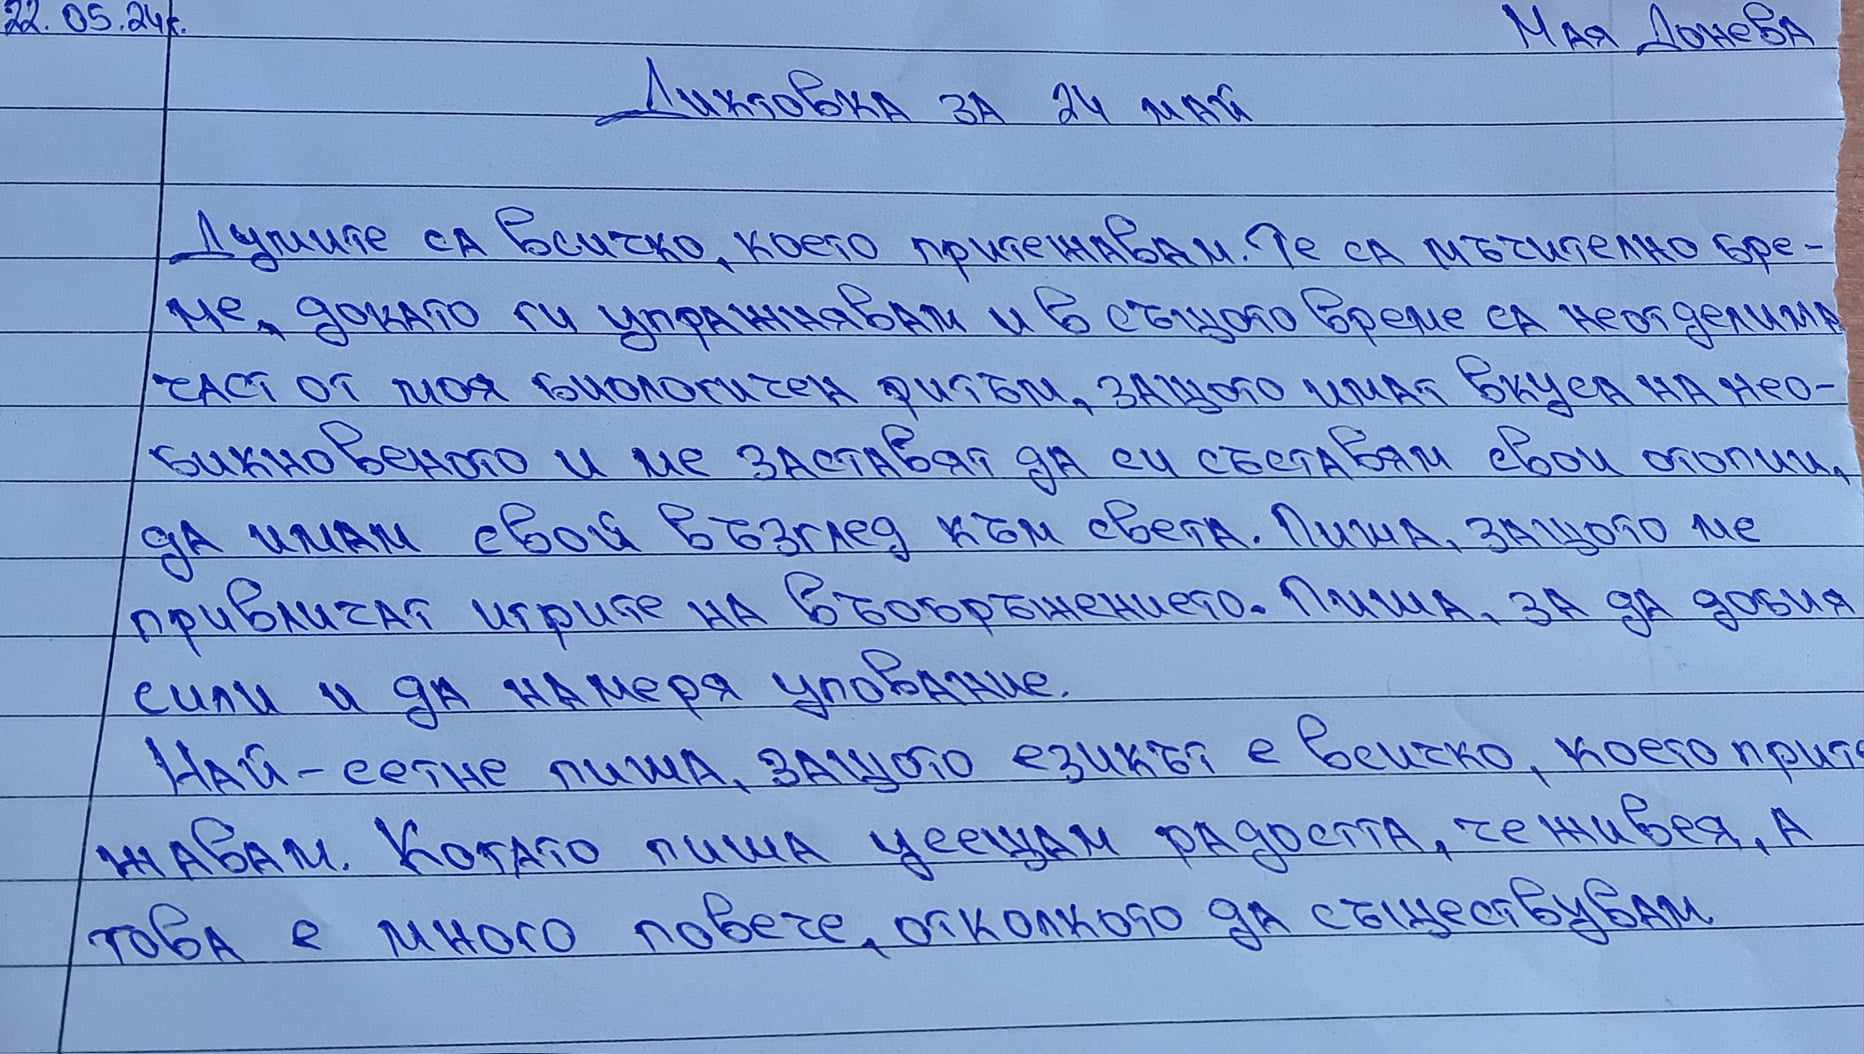 22.05.24г. Мая Донева
Диктовка за 24 май
Думите са всичко, което притежавам. Те са мъчително бре-
ме, докато ги упражнявам и в същото време са неотделима
част от моя биологичен ритъм, защото имат вкуса на нео-
бикновеното и ме заставят да си съставям свои
да имам свой възглед към света. Пиша, защото ме
привличат игрите на въобръжението. Пиша, за да добия
сили и да намеря упование.
Най-сетне пиша, защото езикът е всичко, което прите
жавам. Когато пиша усещам радостта, че живея, а
това е много повече, отколкото да съществувам